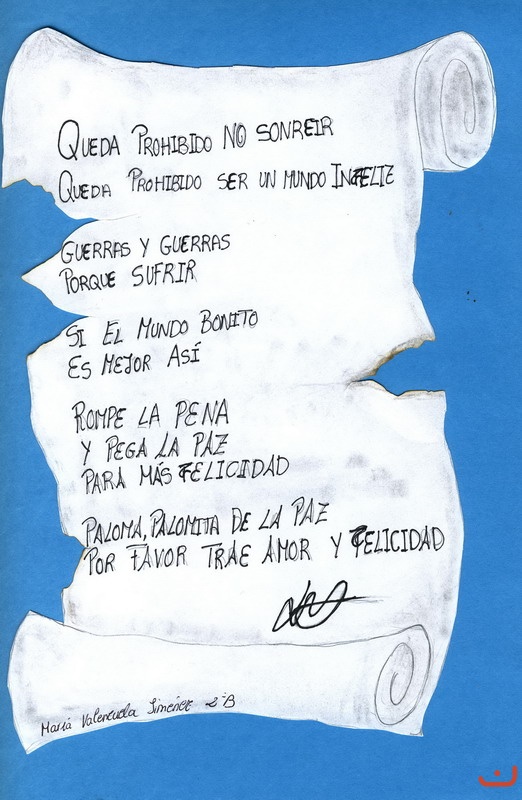 QUEDA PROHIBIDO NO SONREIR
QUEDA PROHIBIDO SER UN MUNDO INFELIZ
GUERRAS Y GUERRAS
PORQUE SUFRIR
SI EL MUNDO BONITO
ES MEJOR ASÍ
ROMPE LA PENA
Y PEGA LA PAZ
PARA MÁS FELICIDAD
PALOMA, PALOMITA DE LA PAZ
POR FAVOR TRAE AMOR Y FELICIDAD
María Valenzuela Jiménez 2ºB